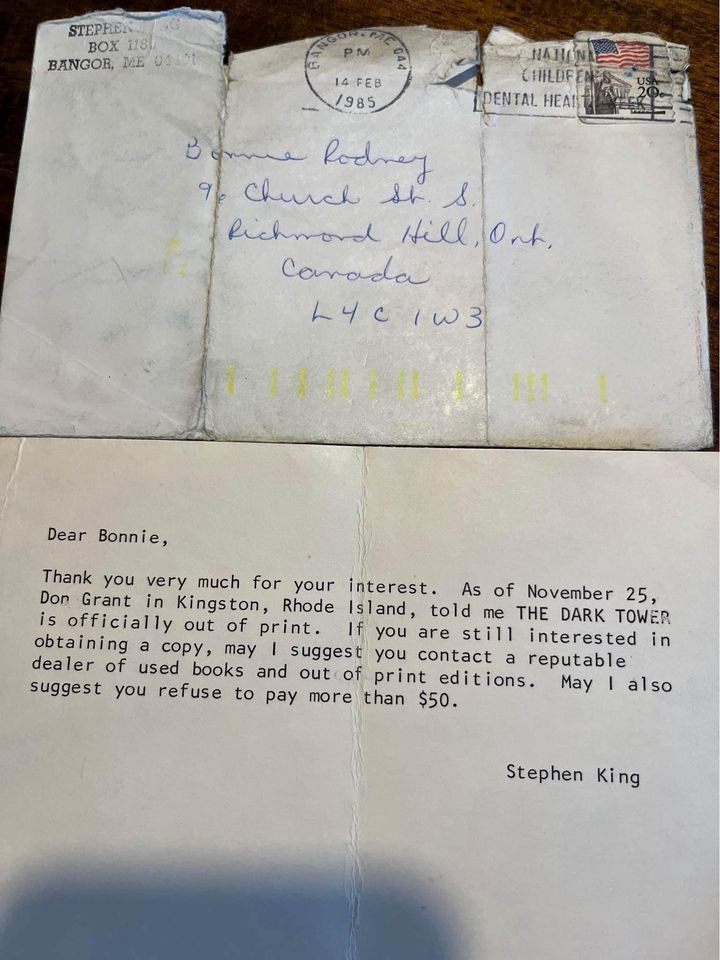 STEPHEN
BOX 118
BANGOR, ME 04401
BANGOR, ME 044
PM
14 FEB
1985
NATIONAL
CHILDREN'S
DENTAL HEALTH WEEK
USA
20c
Bonnie Rodney
Church St. S.
Richmond Hill, Ont.
Canada
L4C 1W3
Dear Bonnie,
Thank you very much for your interest. As of November 25,
Don Grant in Kingston, Rhode Island, told me THE DARK TOWER
is officially out of print. If you are still interested in
obtaining a copy, may I suggest you contact a reputable
dealer of used books and out of print editions. May I also
suggest you refuse to pay more than $50.
Stephen King